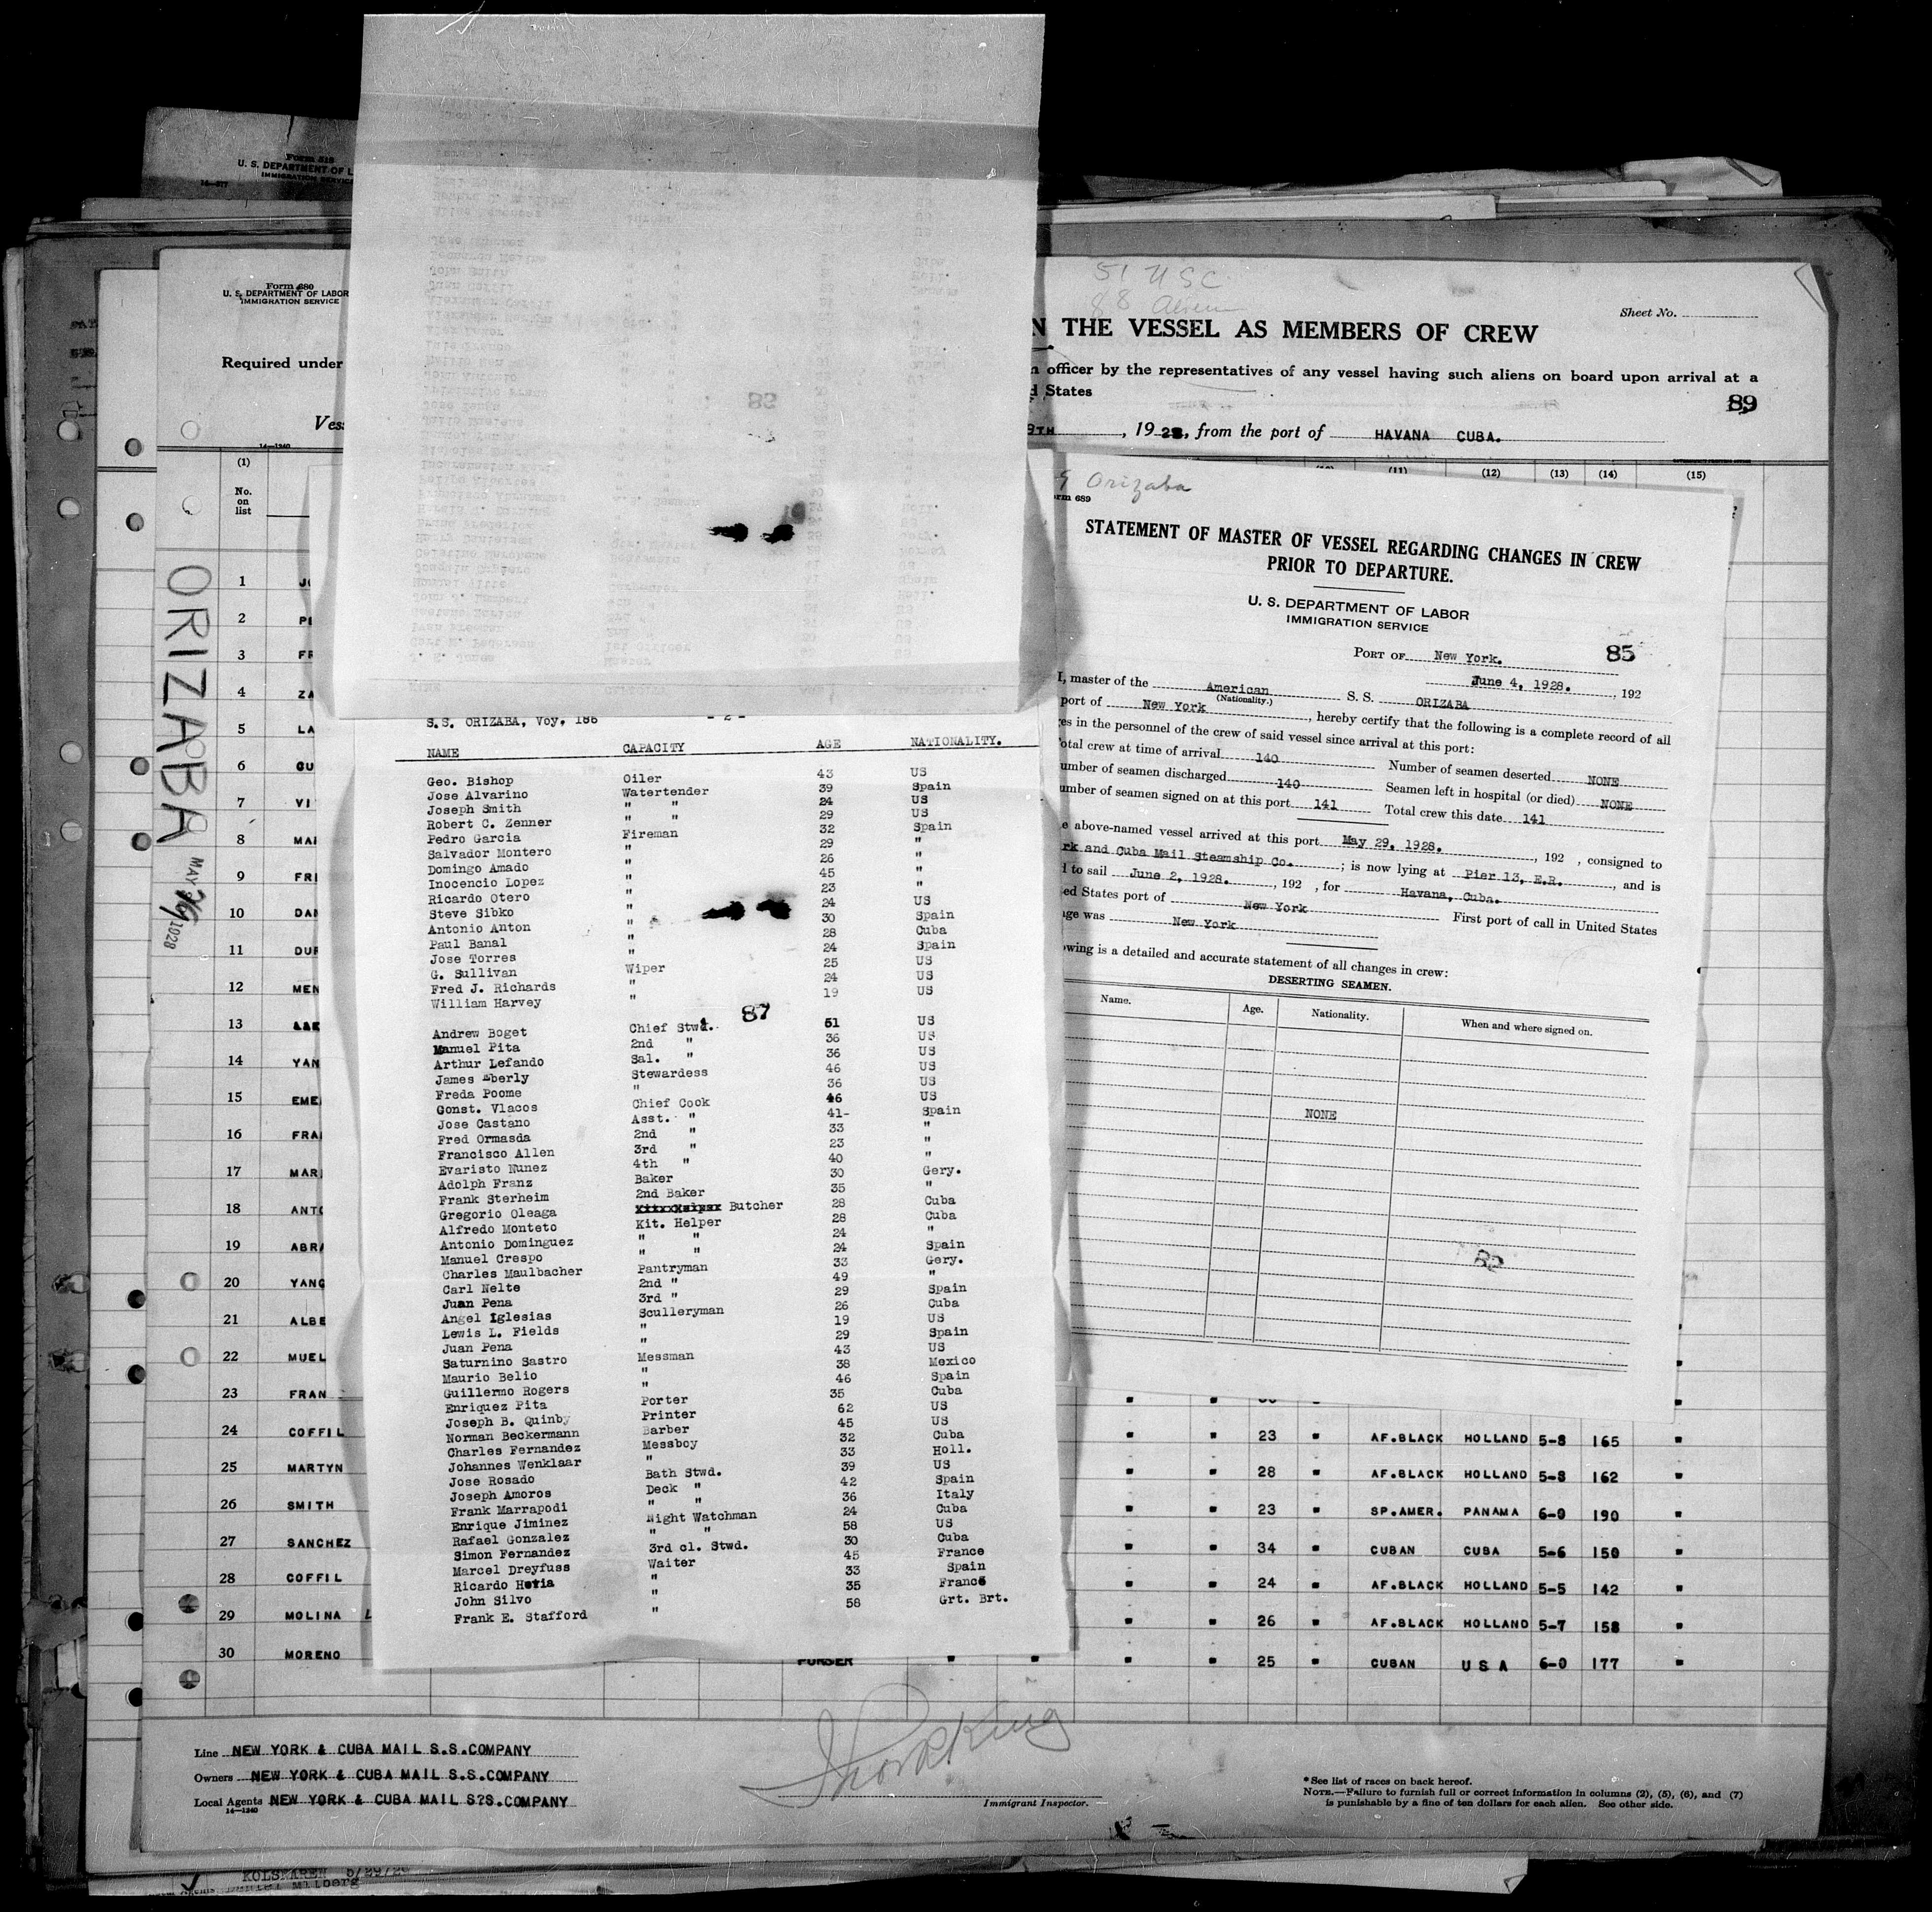 Form 518
U. S. DEPARTMENT OF L
IMMIGRATION SERVICE
Form 680
U. S. DEPARTMENT OF LABOR
IMMIGRATION SERVICE
Required under
Ves
14—1240
(1)
No.
on
list
ORIZABA
MAY 29 1928
1
2
3 FR
4 ZA
5 LA
6 GU
7 VI
8 MAI
9 FRI
10 DAN
11 DUR
12 MEN
13
14 YAN
15 EME
16 FRA
17 MAR
18 ANTO
19 ABRA
20 YANG
21 ALBE
22 MUEL
23 FRAN
24 COFFIL
25 MARTYN
26 SMITH
27 SANCHEZ
28 COFFIL
29 MOLINA
30 MORENO
51 USC
88 Alien
Sheet No.
N THE VESSEL AS MEMBERS OF CREW
officer by the representatives of any vessel having such aliens on board upon arrival at a
d States
89
9TH , 1928, from the port of HAVANA CUBA.
(11) (12) (13) (14) (15)
S.S. ORIZABA, Voy. 186 - 2 -
NAME CAPACITY AGE NATIONALITY.
Geo. Bishop Oiler 43 US
Jose Alvarino Watertender 39 Spain
Joseph Smith " " 24 US
Robert C. Zenner " " 29 US
Pedro Garcia Fireman 32 Spain
Salvador Montero " 29 "
Domingo Amado " 26 "
Inocencio Lopez " 45 "
Ricardo Otero " 23 "
Steve Sibko " 24 US
Antonio Anton " 30 Spain
Paul Banal " 28 Cuba
Jose Torres " 24 Spain
G. Sullivan Wiper 25 US
Fred J. Richards " 24 US
William Harvey " 19 US
87
Andrew Boget Chief Stwd. 51 US
Manuel Pita 2nd " 36 US
Arthur Lefando Sal. " 36 US
James Eberly Stewardess 46 US
Freda Poome " 36 US
Const. Vlacos Chief Cook 46 US
Jose Castano Asst. " 41- Spain
Fred Ormasda 2nd " 33 "
Francisco Allen 3rd " 23 "
Evaristo Nunez 4th " 40 "
Adolph Franz Baker 30 Gery.
Frank Sterheim 2nd Baker 35 "
Gregorio Oleaga Butcher 28 Cuba
Alfredo Monteto Kit. Helper 28 Cuba
Antonio Dominguez " " 24 "
Manuel Crespo " " 24 Spain
Charles Maulbacher Pantryman 33 Gery.
Carl Nelte 2nd " 49 "
Juan Pena 3rd " 29 Spain
Angel Iglesias Sculleryman 26 Cuba
Lewis L. Fields " 19 US
Juan Pena " 29 Spain
Saturnino Sastro Messman 43 US
Maurio Belio " 38 Mexico
Guillermo Rogers " 46 Spain
Enriquez Pita Porter 35 Cuba
Joseph B. Quinby Printer 62 US
Norman Beckermann Barber 45 US
Charles Fernandez Messboy 32 Cuba
Johannes Wenklaar " 33 Holl.
Jose Rosado Bath Stwd. 39 US
Joseph Amoros Deck " 42 Spain
Frank Marrapodi " " 36 Italy
Enrique Jiminez Night Watchman 24 Cuba
Rafael Gonzalez " " 58 US
Simon Fernandez 3rd cl. Stwd. 30 Cuba
Marcel Dreyfuss Waiter 45 France
Ricardo Hevia " 33 Spain
John Silvo " 35 France
Frank E. Stafford " 58 Grt. Brt.
Orizaba
rm 689
STATEMENT OF MASTER OF VESSEL REGARDING CHANGES IN CREW
PRIOR TO DEPARTURE.
U. S. DEPARTMENT OF LABOR
IMMIGRATION SERVICE
PORT OF New York. 85
June 4, 1928. , 192
I, master of the American S. S. ORIZABA
(Nationality.)
port of New York , hereby certify that the following is a complete record of all
es in the personnel of the crew of said vessel since arrival at this port:
otal crew at time of arrival 140 Number of seamen deserted NONE
umber of seamen discharged 140 Seamen left in hospital (or died) NONE
umber of seamen signed on at this port 141 Total crew this date 141
e above-named vessel arrived at this port May 29, 1928. , 192 , consigned to
rk and Cuba Mail Steamship Co. ; is now lying at Pier 13, E.R. , and is
d to sail June 2, 1928. , 192 , for Havana, Cuba.
ed States port of New York First port of call in United States
ge was New York
owing is a detailed and accurate statement of all changes in crew:
DESERTING SEAMEN.
Name. Age. Nationality. When and where signed on.
NONE
82
" " 23 " AF.BLACK HOLLAND 5-8 165 "
" " 28 " AF.BLACK HOLLAND 5-8 162 "
" " 23 " SP.AMER. PANAMA 6-0 190 "
" " 34 " CUBAN CUBA 5-6 150 "
" " 24 " AF.BLACK HOLLAND 5-5 142 "
" " 26 " AF.BLACK HOLLAND 5-7 158 "
PURSER " " " " 25 " CUBAN U S A 6-0 177 "
Line NEW YORK & CUBA MAIL S.S.COMPANY
Owners NEW YORK & CUBA MAIL S.S.COMPANY
Local Agents NEW YORK & CUBA MAIL S?S.COMPANY
14—1240
Immigrant Inspector.
*See list of races on back hereof.
NOTE.—Failure to furnish full or correct information in columns (2), (5), (6), and (7)
is punishable by a fine of ten dollars for each alien. See other side.